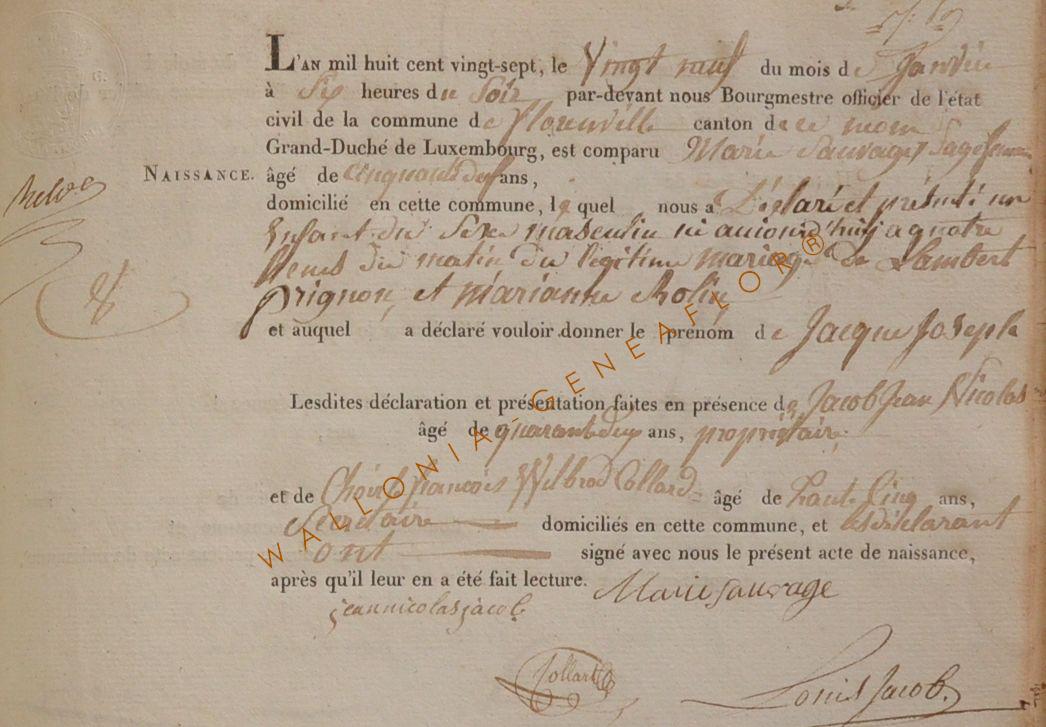 L'AN mil huit cent vingt-sept, le Vingt neuf du mois de Janvier
à Six heures du Soir par-devant nous Bourgmestre officier de l'état
civil de la commune de florenville canton de ce nom
Grand-Duché de Luxembourg, est comparu Marie Sauvage Sagefemme
NAISSANCE. âgé de Cinquante deux ans,
domicilié en cette commune, lequel nous a Déclaré et présenté un
Enfant du Sexe masculin né aujourd'huij a quatre
heures du matin du légitime mariage De Lambert
Prignon, et marianne Rolin
et auquel a déclaré vouloir donner le prénom de Jacque Joseph
Lesdites déclaration et présentation faites en présence de Jacob Jean Nicolas
âgé de quarante deux ans, propriétaire
et de francois Wilbrod Collard âgé de trente Cinq ans,
Secretaire domiciliés en cette commune, et les déclarant
ont signé avec nous le présent acte de naissance,
après qu'il leur en a été fait lecture. Marie Sauvage
jean nicolas jacob
Collard
Louis Jacob
WALLONIA-GENEAFLOR®